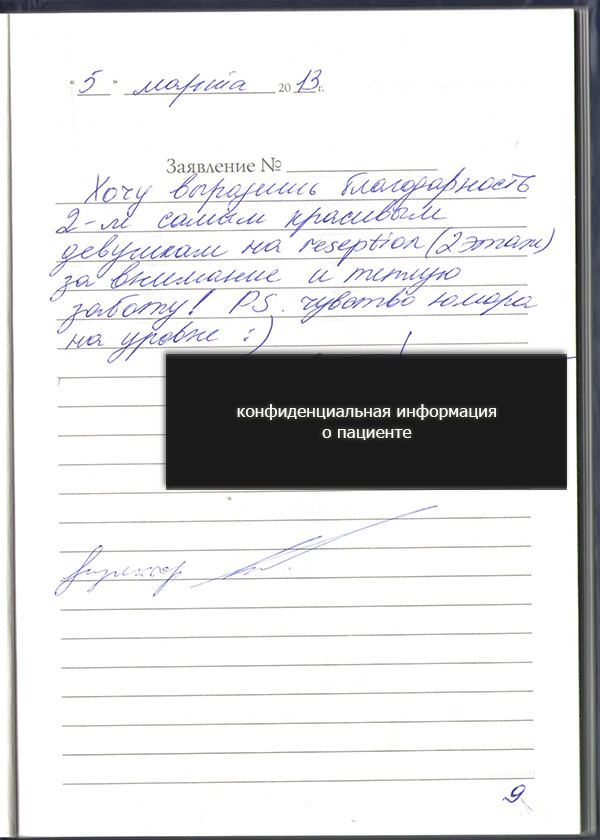 " 5 " марта 20 13 г.
Заявление №
Хочу выразить благодарность
2-м самым красивым
девушкам на reseption (2 этаж)
за внимание и теплую
заботу! PS. чувство юмора
на уровне :)
конфиденциальная информация
о пациенте
Директор
9